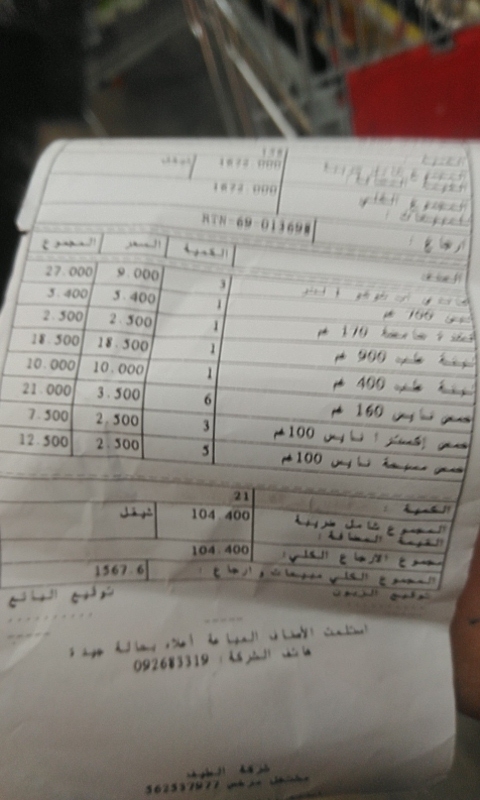 128
1672.000 شيقل
المجموع الكلي 1672.000
ارجاع : RTN-69-013698
الصنف الكمية السعر المجموع
3 9.000 27.000
700 غم 1 5.400 5.400
170 غم 1 2.500 2.500
علب 900 غم 1 18.500 18.500
علب 400 غم 1 10.000 10.000
حمص نايس 160 غم 6 3.500 21.000
حمص إكسترا نايس 100 غم 3 2.500 7.500
حمص مسبحة نايس 100 غم 5 2.500 12.500
الكمية : 21
المجموع شامل ضريبة القيمة المضافة : 104.400 شيقل
مجموع الارجاع الكلي: 104.400
المجموع الكلي مبيعات و ارجاع : 1567.6
توقيع الزبون توقيع البائع
استلمت الأصناف المباعة أعلاه بحالة جيدة
هاتف الشركة : 092683319
شركة الطيف
مشتغل مرخص 562537977